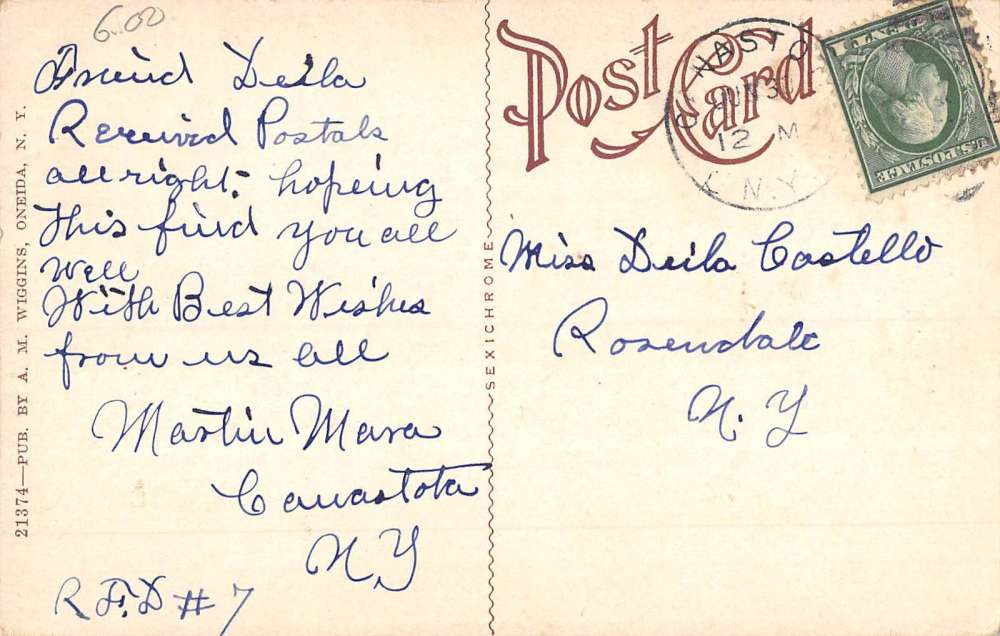 6.00
Friend Deila
Received Postals
all right. hopeing
This find you all
well
With Best Wishes
from us all
Martin Mara
Canastota
N.Y
R.F.D # 7
21374—PUB. BY A. M. WIGGINS, ONEIDA, N. Y.
SEXICHROME
Post Card
CANASTO
JUN 30
12 M
N.Y.
U.S. POSTAGE
Miss Deila Costello
Rosendale
N. Y